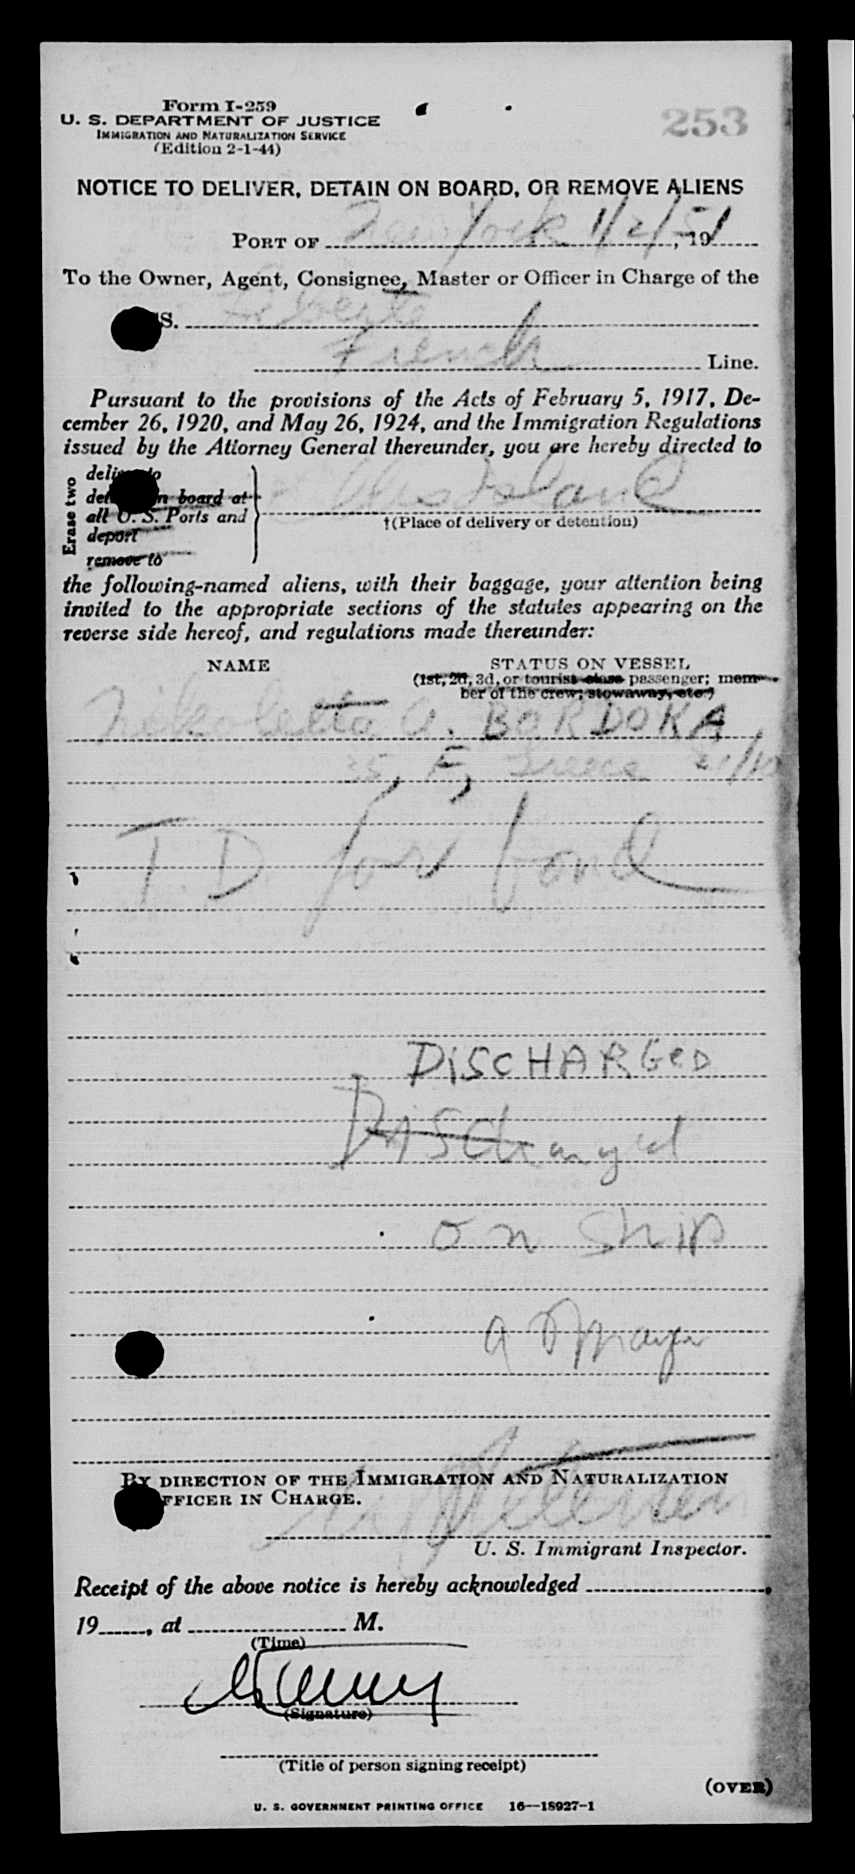 Form I-259
U. S. DEPARTMENT OF JUSTICE
IMMIGRATION AND NATURALIZATION SERVICE
(Edition 2-1-44)
253
NOTICE TO DELIVER, DETAIN ON BOARD, OR REMOVE ALIENS
PORT OF New York 1/2/51, 19
To the Owner, Agent, Consignee, Master or Officer in Charge of the
SS. Liberte
French Line.
Pursuant to the provisions of the Acts of February 5, 1917, De-
cember 26, 1920, and May 26, 1924, and the Immigration Regulations
issued by the Attorney General thereunder, you are hereby directed to
Erase two
deliver to
detain on board at
all U. S. Ports and
deport
remove to
Ellis Island
†(Place of delivery or detention)
the following-named aliens, with their baggage, your attention being
invited to the appropriate sections of the statutes appearing on the
reverse side hereof, and regulations made thereunder:
NAME STATUS ON VESSEL
(1st, 2d, 3d, or tourist class passenger; mem-
ber of the crew; stowaway, etc.)
Nikoletta G. BORDOKA
35, F, Greece
T. D for bond
DISCHARGED
Discharged
on ship
BY DIRECTION OF THE IMMIGRATION AND NATURALIZATION
OFFICER IN CHARGE.
U. S. Immigrant Inspector.
Receipt of the above notice is hereby acknowledged ,
19 , at M.
(Time)
(Signature)
(Title of person signing receipt)
(OVER)
U. S. GOVERNMENT PRINTING OFFICE 16—18927-1